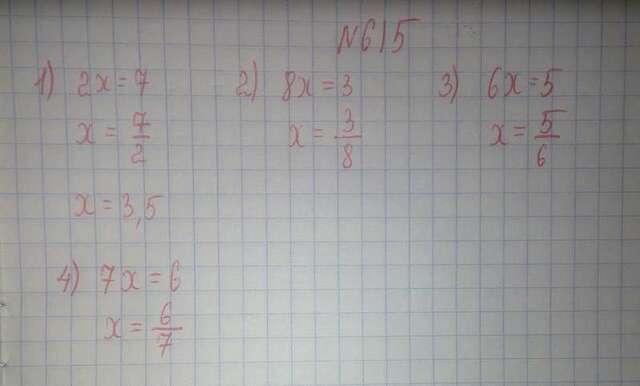 №615
1) 2x=7 2) 8x=3 3) 6x=5
x=7/2 x=3/8 x=5/6
x=3,5
4) 7x=6
x=6/7